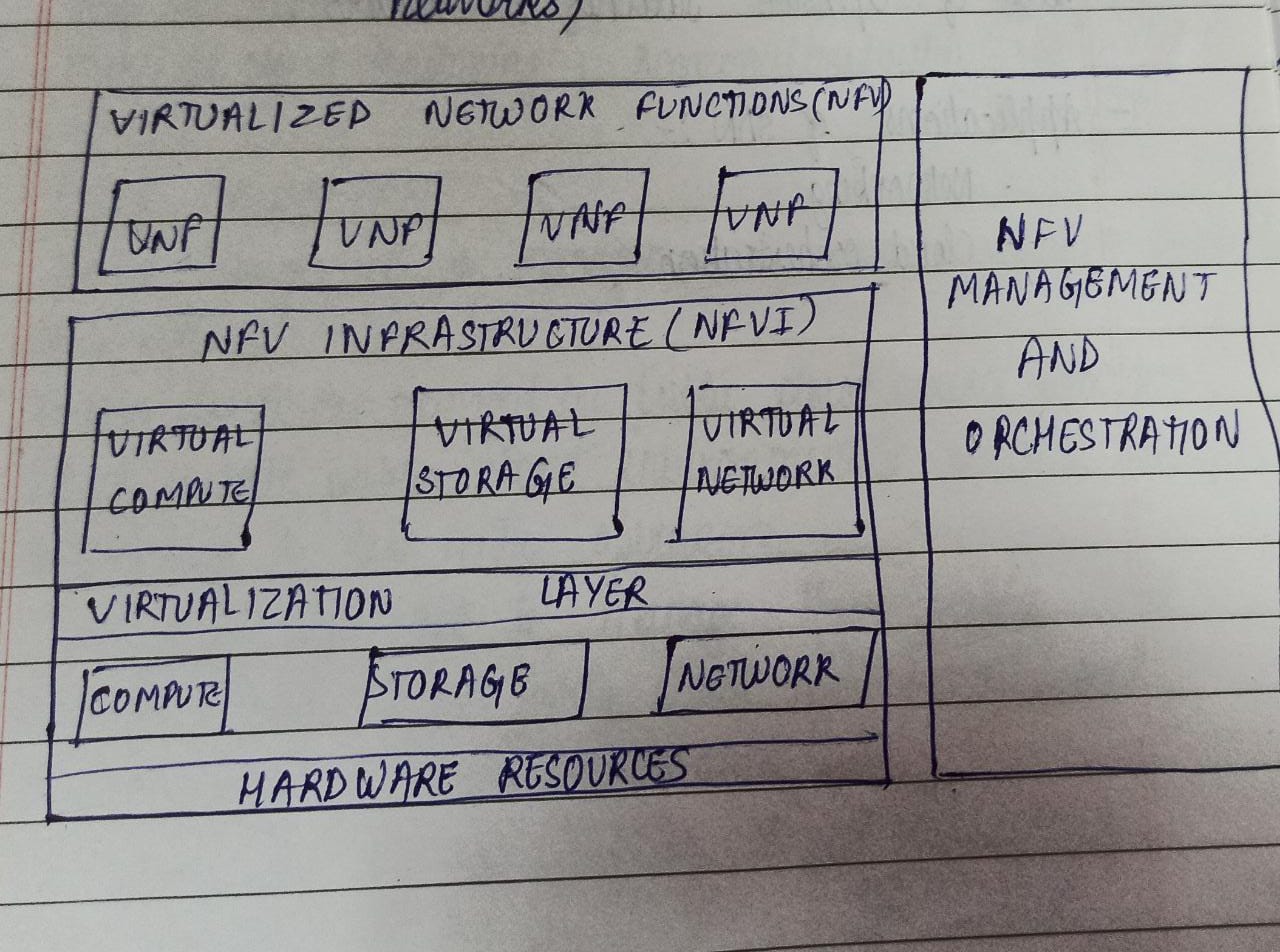 networks)
VIRTUALIZED NETWORK FUNCTIONS (NFV)
VNF VNF VNF VNF
NFV INFRASTRUCTURE (NFVI)
VIRTUAL
COMPUTE
VIRTUAL
STORAGE
VIRTUAL
NETWORK
VIRTUALIZATION LAYER
COMPUTE STORAGE NETWORK
HARDWARE RESOURCES
NFV
MANAGEMENT
AND
ORCHESTRATION